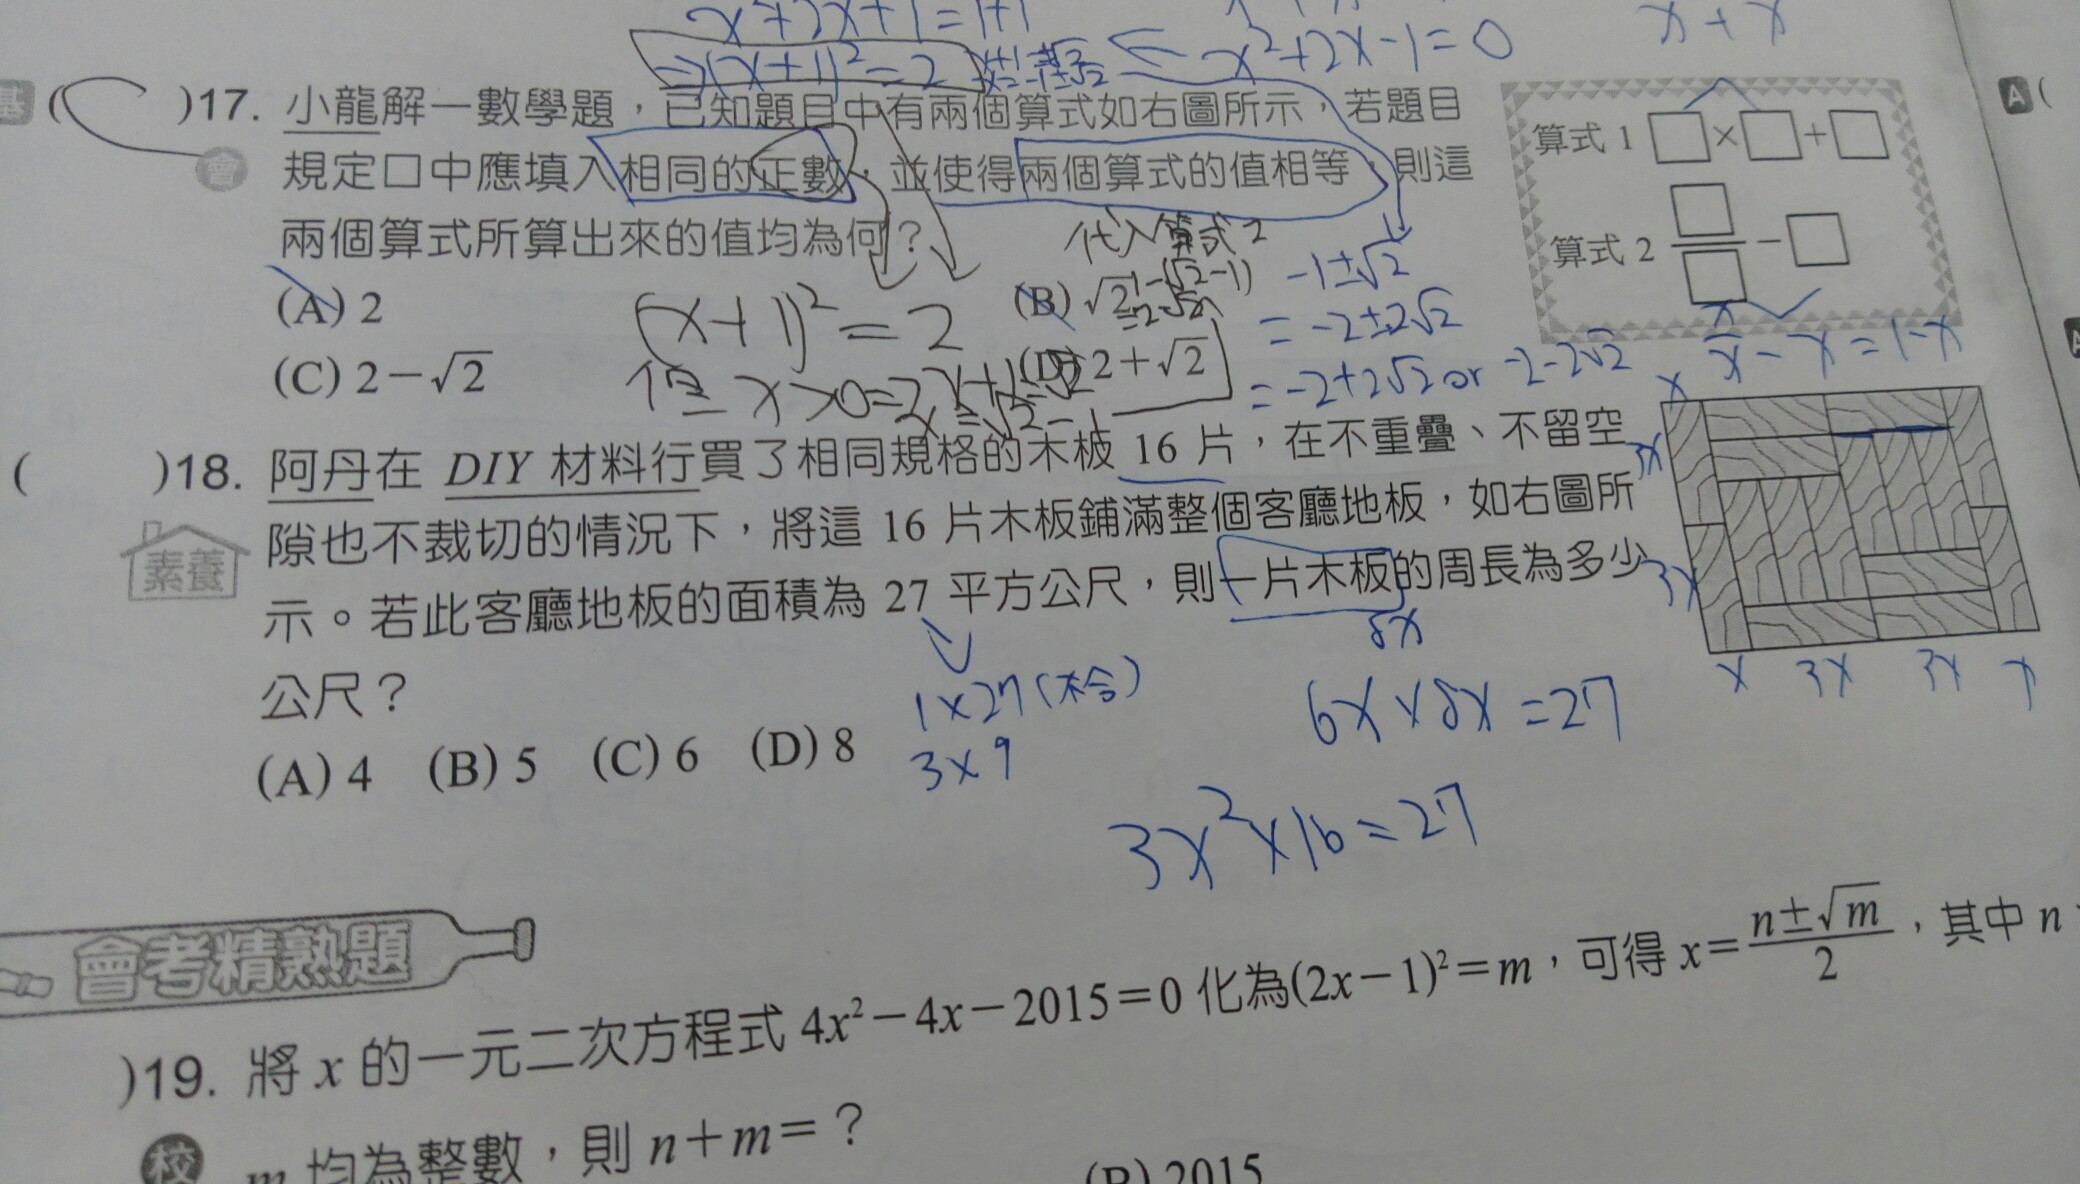 x²+2x+1=1+1
⇒(x+1)²=2
x+1=±√2
x=-1±√2
← x²+2x-1=0
x+x
基 ( )17. 小龍解一數學題，已知題目中有兩個算式如右圖所示，若題目
會 規定□中應填入相同的正數，並使得兩個算式的值相等，則這
兩個算式所算出來的值均為何？
算式 1 □×□+□
算式 2 □/□-□
代入算式2
(A) 2
(B) √2
1-(√2-1)
=2-√2
(C) 2-√2
(D) 2+√2
(x+1)²=2
x>0
x+1=√2
x=√2-1
-1±√2
=-2±2√2
=-2+2√2 or -2-2√2
x/x-x=1-x
( )18. 阿丹在 DIY 材料行買了相同規格的木板 16 片，在不重疊、不留空
素養 隙也不裁切的情況下，將這 16 片木板鋪滿整個客廳地板，如右圖所
示。若此客廳地板的面積為 27 平方公尺，則一片木板的周長為多少
公尺？
(A) 4 (B) 5 (C) 6 (D) 8
x
3x
3x
x 3x 3x x
8x
1×27(不合)
3×9
6x×8x=27
3x²×16=27
會考精熟題
)19. 將 x 的一元二次方程式 4x²-4x-2015=0 化為(2x-1)²=m，可得 x=(n±√m)/2，其中 n、
校 m 均為整數，則 n+m=？
(B) 2015
A (
A